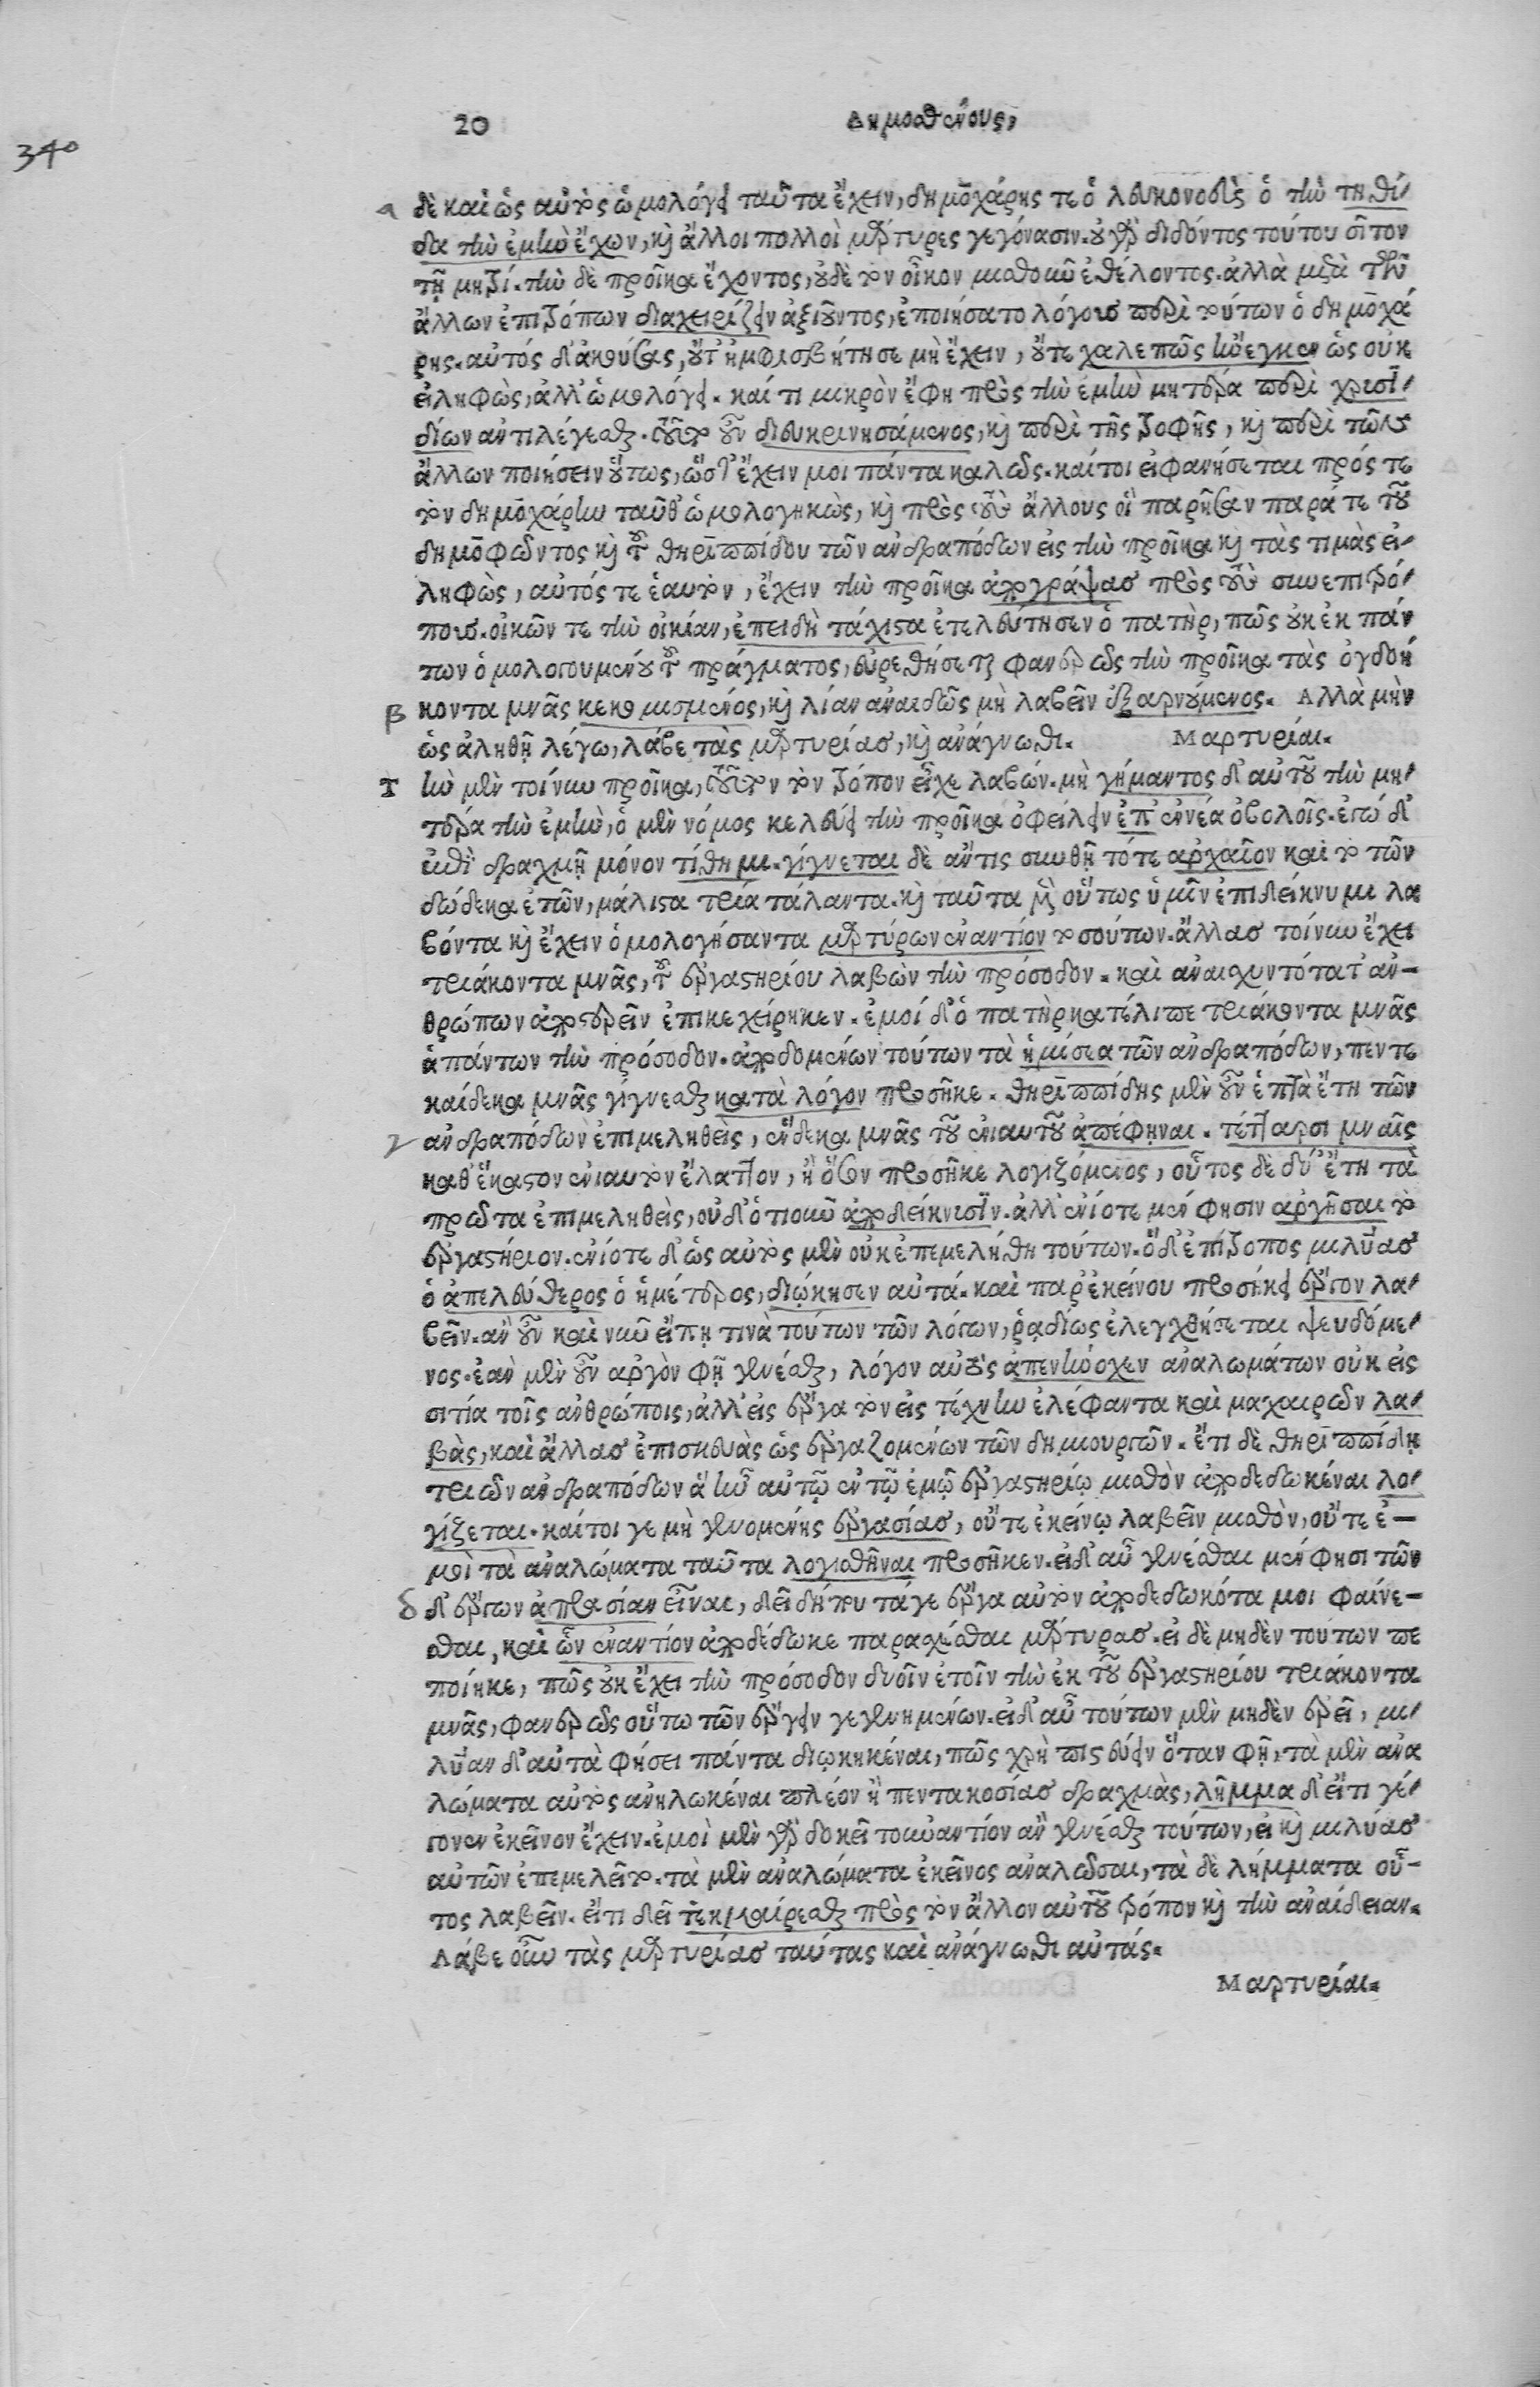 20
Δημοσθένους,
340
α δὲ καὶ ὡς αὐτὸς ὡμολόγει ταῦτα ἔχειν, δημοχάρης τε ὁ λευκονοεὺς ὁ τὴν τηθί-
δα τὴν ἐμὴν ἔχων, καὶ ἄλλοι πολλοὶ μάρτυρες γεγόνασιν. οὐ γὰρ διδόντος τούτου σῖτον
τῇ μητρί. τὴν δὲ προῖκα ἔχοντος, οὐδὲ τὸν οἶκον μισθοῦν ἐθέλοντος. ἀλλὰ μετὰ τῶν
ἄλλων ἐπιτρόπων διαχειρίζειν ἀξιοῦντος, ἐποιήσατο λόγους περὶ τούτων ὁ δημοχά
ρης. αὐτός δ' ἀκούσας, οὔτ' ἠμφισβήτησε μὴ ἔχειν, οὔτε χαλεπῶς ἤνεγκεν ὡς οὐκ
εἰληφὼς, ἀλλ' ὡμολόγει. καί τι μικρὸν ἔφη πρὸς τὴν ἐμὴν μητέρα περὶ χρυσϊ-
δίων ἀντιλέγεσθαι. τοῦτο οὖν διευκρινησάμενος, καὶ περὶ τῆς τροφῆς, καὶ περὶ τῶν
ἄλλων ποιήσειν οὕτως, ὥστ' ἔχειν μοι πάντα καλῶς. καίτοι εἰ φανήσεται πρός τε
τὸν δημοχάρην ταῦθ' ὡμολογηκὼς, καὶ πρὸς τοὺς ἄλλους οἳ παρῆσαν παρά τε τοῦ
δημοφῶντος καὶ τοῦ θηριππίδου τῶν ἀνδραπόδων εἰς τὴν προῖκα καὶ τὰς τιμὰς εἰ-
ληφὼς, αὐτός τε ἑαυτὸν, ἔχειν τὴν προῖκα ἀπογράψας πρὸς τοὺς συνεπιτρό-
πους. οἰκῶν τε τὴν οἰκίαν, ἐπειδὴ τάχιστα ἐτελεύτησεν ὁ πατὴρ, πῶς οὐκ ἐκ πάν
των ὁμολογουμένου τοῦ πράγματος, εὑρεθήσεται φανερῶς τὴν προῖκα τὰς ὀγδοή
β κοντα μνᾶς κεκομισμένος, καὶ λίαν ἀναιδῶς μὴ λαβεῖν ἐξαρνούμενος. Αλλὰ μὴν
ὡς ἀληθῆ λέγω, λάβε τὰς μαρτυρίας, καὶ ἀνάγνωθι. Μαρτυρίαι.
Τ ὴν μὲν τοίνυν προῖκα, τοῦτον τὸν τρόπον εἶχε λαβών. μὴ γήμαντος δ' αὐτοῦ τὴν μη-
τέρα τὴν ἐμὴν, ὁ μὲν νόμος κελεύει τὴν προῖκα ὀφείλειν ἐπ' ἐννέα ὀβολοῖς. ἐγώ δ'
ἐπὶ δραχμῇ μόνον τίθημι. γίγνεται δὲ ἄν τις συνθῇ τό τε ἀρχαῖον καὶ τὸ τῶν
δώδεκα ἐτῶν, μάλιστα τρία τάλαντα. καὶ ταῦτα μὲν οὕτως ὑμῖν ἐπιδείκνυμι λα
βόντα καὶ ἔχειν ὁμολογήσαντα μαρτύρων ἐναντίον τοσούτων. ἄλλας τοίνυν ἔχει
τριάκοντα μνᾶς, τοῦ ἐργαστηρίου λαβὼν τὴν πρόσοδον. καὶ ἀναισχυντότατ' ἀν-
θρώπων ἀποστερεῖν ἐπικεχείρηκεν. ἐμοί δ' ὁ πατὴρ κατέλιπε τριάκοντα μνᾶς
ἀπάντων τὴν πρόσοδον. ἀποδομένων τούτων τὰ ἡμίσεα τῶν ἀνδραπόδων, πέντε
καίδεκα μνᾶς γίγνεσθαι κατὰ λόγον προσῆκε. θηριππίδης μὲν οὖν ἑπτὰ ἔτη τῶν
γ ἀνδραπόδων ἐπιμεληθεὶς, ἕνδεκα μνᾶς τοῦ ἐνιαυτοῦ ἀπέφηναι. τέτταρσι μναῖς
καθ' ἕκαστον ἐνιαυτὸν ἔλαττον, ἢ ὅσον προσῆκε λογιζόμενος, οὗτος δὲ δύ' ἔτη τὰ
πρῶτα ἐπιμεληθεὶς, οὐδ' ὁτιοῦν ἀποδείκνυσϊν. ἀλλ' ἐνίοτε μέν φησιν ἀργῆσαι τὸ
ἐργαστήριον. ἐνίοτε δ' ὡς αὐτὸς μὲν οὐκ ἐπεμελήθη τούτων. ὁ δ' ἐπίτροπος μιλύας
ὁ ἀπελεύθερος ὁ ἡμέτερος, διῴκησεν αὐτά. καὶ παρ' ἐκείνου προσήκει ἔργον λα-
βεῖν. ἂν οὖν καὶ νῦν εἴπῃ τινὰ τούτων τῶν λόγων, ῥᾳδίως ἐλεγχθήσεται ψευδόμε-
νος. ἐὰν μὲν οὖν ἀργὸν φῇ γενέσθαι, λόγον αὐτὸς ἀπενήνοχεν ἀναλωμάτων οὐκ εἰς
σιτία τοῖς ἀνθρώποις, ἀλλ' εἰς ἔργα τὸν εἰς τέχνην ἐλέφαντα καὶ μαχαιρῶν λα-
βὰς, καὶ ἄλλας ἐπισκευὰς ὡς ἐργαζομένων τῶν δημιουργῶν. ἔτι δὲ θηριππίδῃ
τριῶν ἀνδραπόδων ἃ ἦν αὐτῷ ἐν τῷ ἐμῷ ἐργαστηρίῳ μισθὸν ἀποδεδωκέναι λο-
γίζεται. καίτοι γε μὴ γενομένης ἐργασίας, οὔτε ἐκείνῳ λαβεῖν μισθὸν, οὔτε ἐ-
μοὶ τὰ ἀναλώματα ταῦτα λογισθῆναι προσῆκεν. εἰ δ' αὖ γενέσθαι μέν φησι τῶν
δ δ' ἔργων ἀπρασίαν εἶναι, δεῖ δήπου τά γε ἔργα αὐτὸν ἀποδεδωκότα μοι φαίνε-
σθαι, καὶ ὧν ἐναντίον ἀποδέδωκε παρασχέσθαι μάρτυρας. εἰ δὲ μηδὲν τούτων πε
ποίηκε, πῶς οὐκ ἔχει τὴν πρόσοδον δυοῖν ἐτοῖν τὴν ἐκ τοῦ ἐργαστηρίου τριάκοντα
μνᾶς, φανερῶς οὕτω τῶν ἔργων γεγενημένων. εἰ δ' αὖ τούτων μὲν μηδὲν ἐρεῖ, μι-
λύαν δ' αὐτὰ φήσει πάντα διῳκηκέναι, πῶς χρὴ πιστεύειν ὅταν φῇ, τὰ μὲν ἀνα
λώματα αὐτὸς ἀνηλωκέναι πλέον ἢ πεντακοσίας δραχμὰς, λῆμμα δ' εἴ τι γέ-
γονεν ἐκεῖνον ἔχειν. ἐμοὶ μὲν γὰρ δοκεῖ τοὐναντίον ἂν γενέσθαι τούτων, εἰ καὶ μιλύας
αὐτῶν ἐπεμελεῖτο. τὰ μὲν ἀναλώματα ἐκεῖνος ἀναλῶσαι, τὰ δὲ λήμματα οὗ-
τος λαβεῖν. εἴ τι δεῖ τεκμαίρεσθαι πρὸς τὸν ἄλλον αὐτοῦ τρόπον καὶ τὴν ἀναίδειαν.
Λάβε οὖν τὰς μαρτυρίας ταύτας καὶ ἀνάγνωθι αὐτάς.
Μαρτυρίαι.